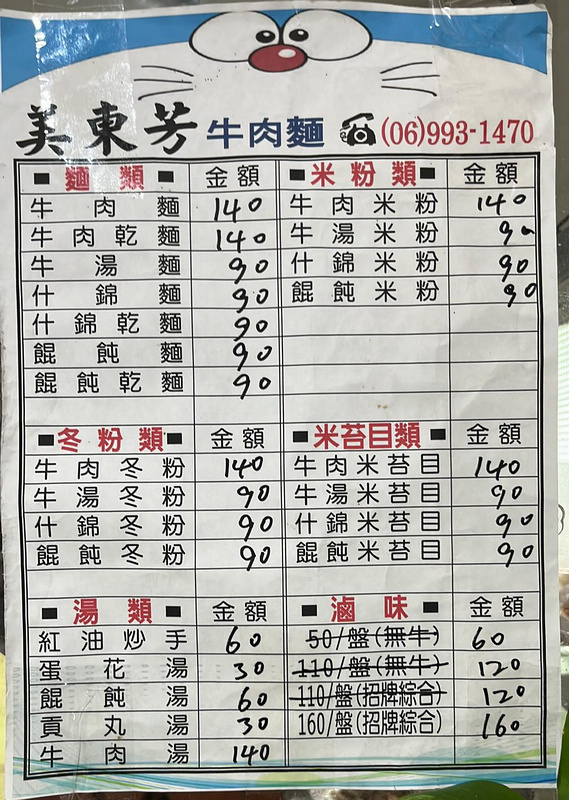 美東芳 牛肉麵 ☎(06)993-1470
■ 麵類 ■ 金額 ■ 米粉類 ■ 金額
牛肉麵 140 牛肉米粉 140
牛肉乾麵 140 牛湯米粉 90
牛湯麵 90 什錦米粉 90
什錦麵 90 餛飩米粉 90
什錦乾麵 90
餛飩麵 90
餛飩乾麵 90
■ 冬粉類 ■ 金額 ■ 米苔目類 ■ 金額
牛肉冬粉 140 牛肉米苔目 140
牛湯冬粉 90 牛湯米苔目 90
什錦冬粉 90 什錦米苔目 90
餛飩冬粉 90 餛飩米苔目 90
■ 湯類 ■ 金額 ■ 滷味 ■ 金額
紅油炒手 60 50/盤(無牛) 60
蛋花湯 30 110/盤(無牛) 120
餛飩湯 60 110/盤(招牌綜合) 120
貢丸湯 30 160/盤(招牌綜合) 160
牛肉湯 140